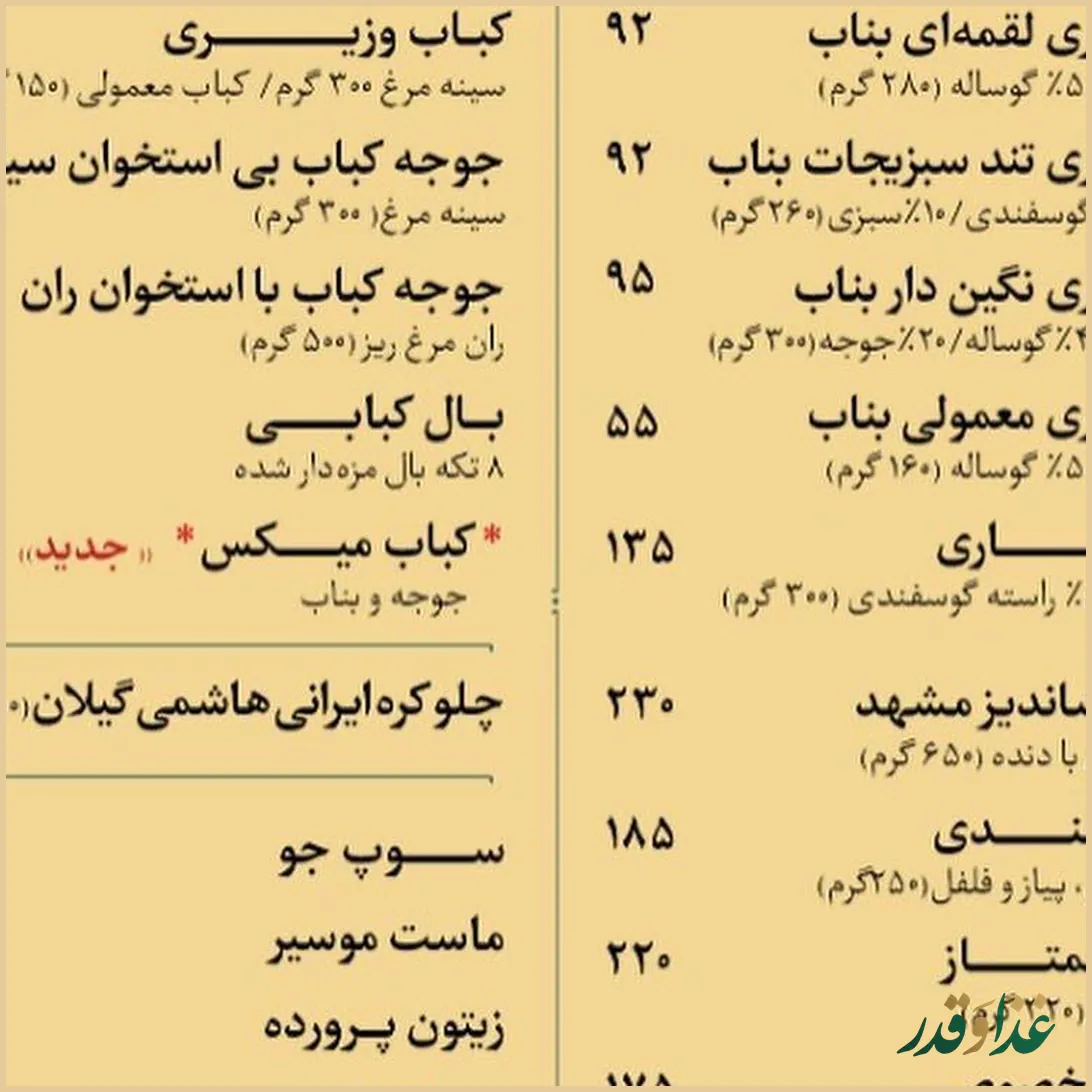 لقمه‌ای بناب ۹۲
گوساله (۲۸۰ گرم)
تند سبزیجات بناب ۹۲
گوسفندی/۱۰٪سبزی (۲۶۰گرم)
نگین دار بناب ۹۵
٪گوساله/۲۰٪جوجه(۳۰۰گرم)
معمولی بناب ۵۵
گوساله (۱۶۰ گرم)
۱۳۵
٪ راسته گوسفندی (۳۰۰ گرم)
مشهد ۲۳۰
با دنده (۶۵۰ گرم)
۱۸۵
پیاز و فلفل(۲۵۰گرم)
۲۲۰
(۲۲۰ گرم)
۱۷۵
کباب وزیری
سینه مرغ ۳۰۰ گرم/ کباب معمولی (۱۵۰
جوجه کباب بی استخوان
سینه مرغ( ۳۰۰ گرم)
جوجه کباب با استخوان ران
ران مرغ ریز(۵۰۰ گرم)
بال کبابی
۸ تکه بال مزه‌دار شده
*کباب میکس* (( جدید))
جوجه و بناب
چلو کره ایرانی هاشمی گیلان
سوپ جو
ماست موسیر
زیتون پرورده
غذا و قدر